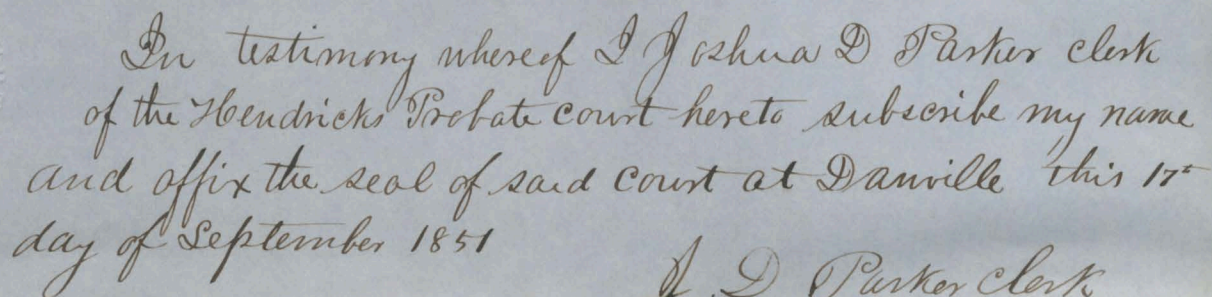 In testimony whereof I Joshua D Parker clerk
of the Hendricks Probate court hereto subscribe my name
and affix the seal of said court at Danville this 17th
day of September 1851
J. D Parker clerk